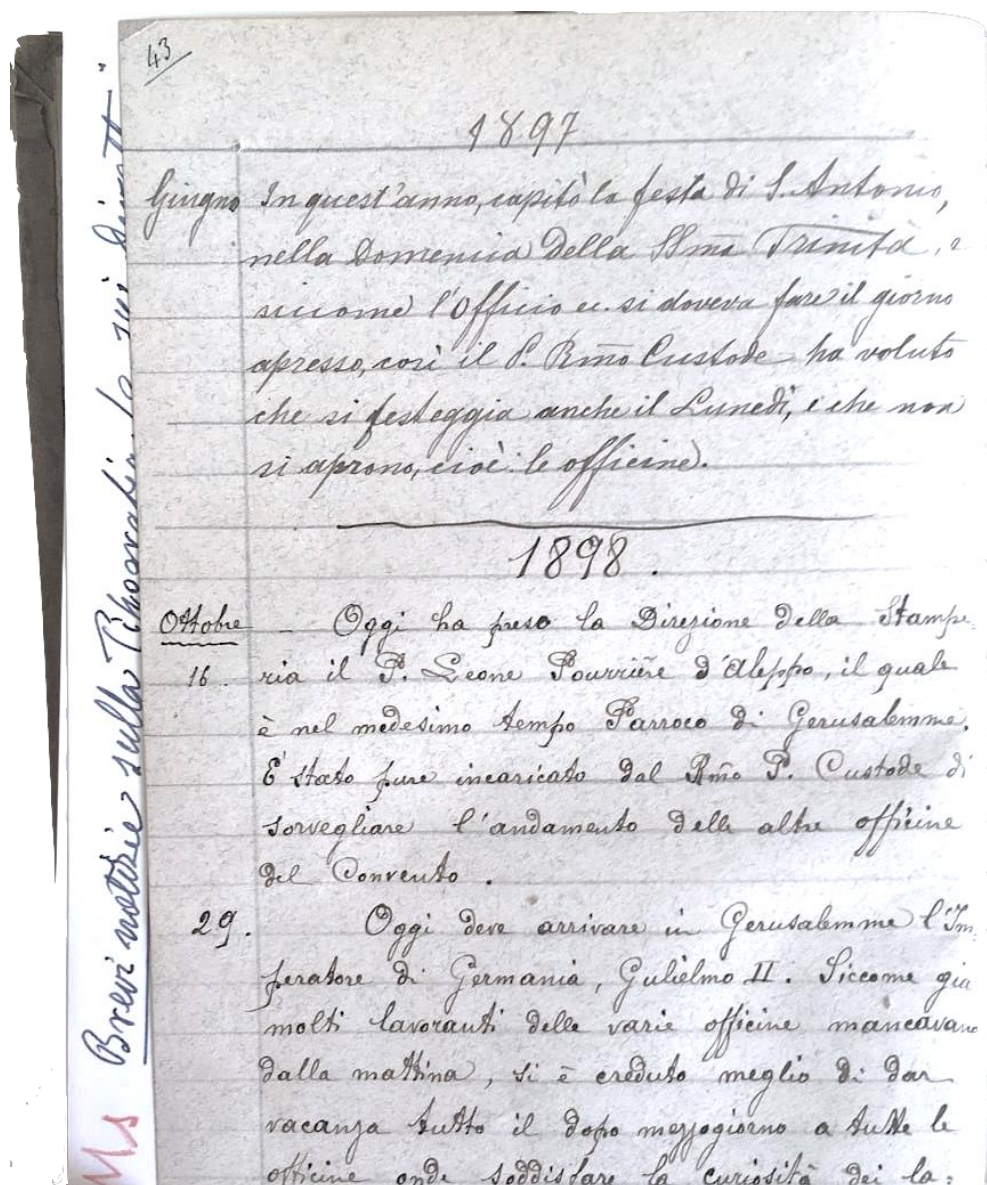 43
1897
Giugno In quest'anno, capitò la festa di S. Antonio,
nella Domenica della SSma Trinità, e
siccome l'Officio ec. si doveva fare il giorno
apresso, così il P. Rmo Custode ha voluto
che si festeggia anche il Lunedì, e che non
si aprono, cioè: le officine.
1898.
Ottobre - Oggi ha preso la Direzione della Stampe-
16. ria il P. Leone Pourrière d'Aleppo, il quale
è nel medesimo tempo Parroco di Gerusalemme.
E' stato pure incaricato dal Rmo P. Custode di
sorvegliare l'andamento delle altre officine
del Convento.
29. Oggi deve arrivare in Gerusalemme l'Im-
peratore di Germania, Gulielmo II. Siccome già
molti lavoranti delle varie officine mancavano
dalla mattina, si è creduto meglio di dar
vacanza tutto il dopo mezzogiorno a tutte le
officine onde soddisfare la curiosità dei la=
Ms Brevi notizie sulla